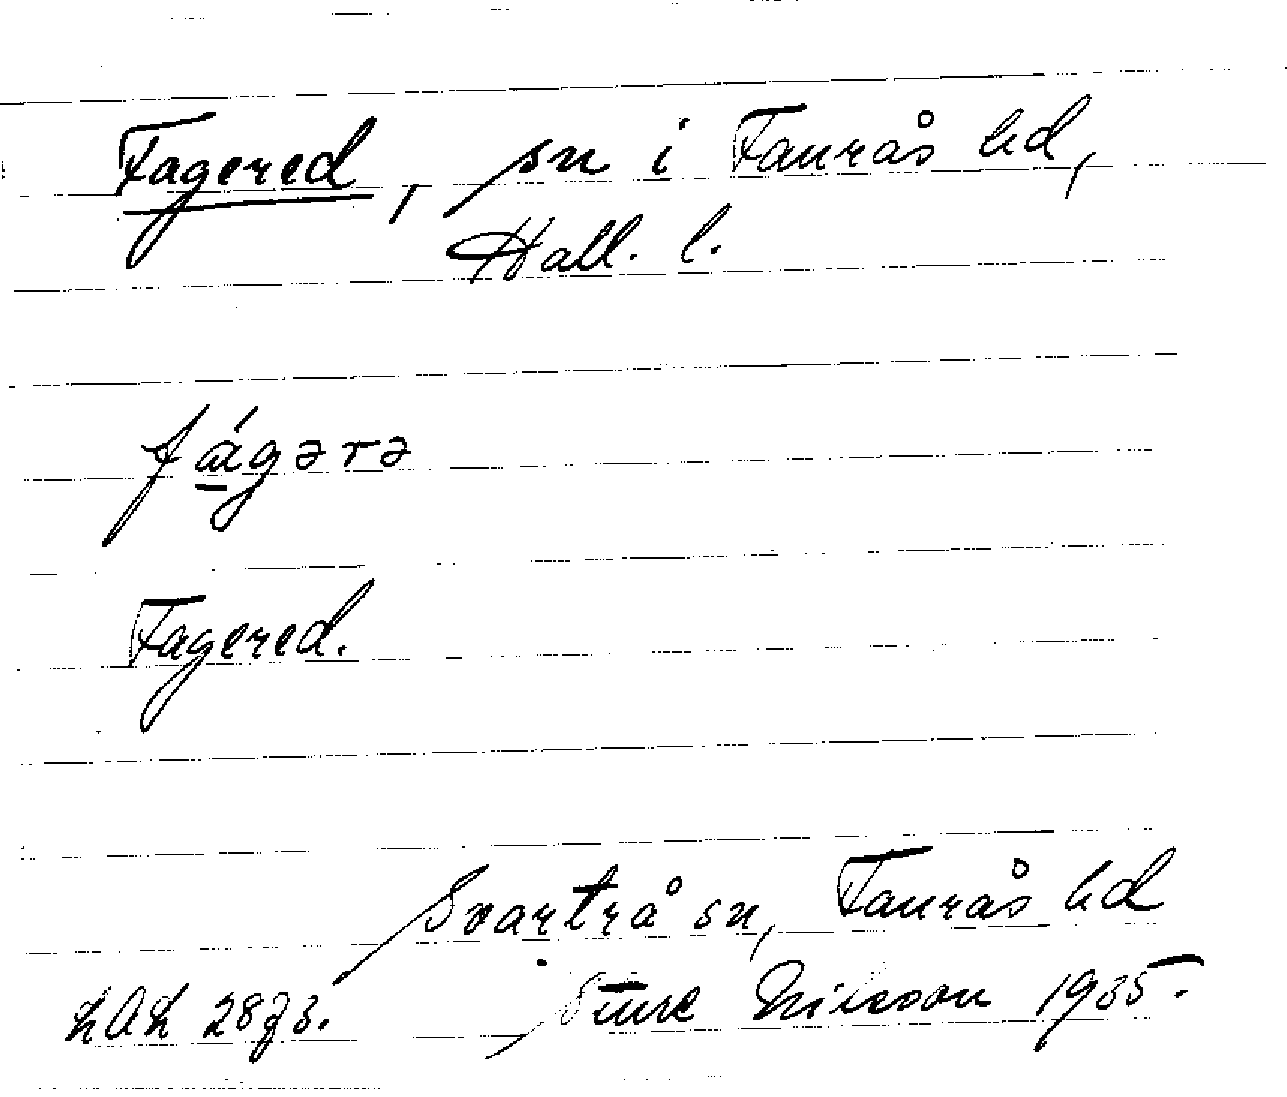 Fagered, sn i Faurås hd,
Hall. l.
fágərə
Fagered.
Svartrå sn, Faurås hd
LAL 2873. Sture Nilsson 1935.